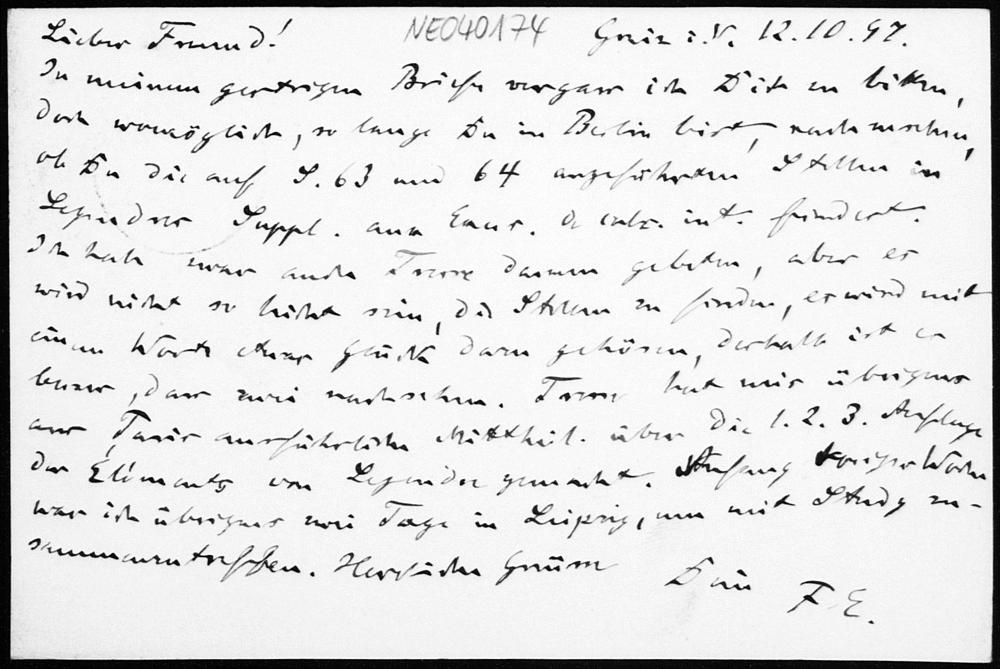 Lieber Freund! NE040174 Greiz i.V. 12.10.97.
In meinem gestrigen Briefe vergass ich Dich zu bitten,
doch womöglich, so lange Du in Berlin bist, nachzusehen,
ob Du die auf S. 63 und 64 angeführten Stellen in
Legendres Suppl. aux Exerc. de calc. int. findest.
Ich habe zwar auch Tresse darum gebeten, aber es
wird nicht so leicht sein, die Stellen zu finden, es wird mit
einem Worte etwas Glück dazu gehören, deshalb ist es
besser, dass zwei nachsehen. Tresse hat mir übrigens
aus Paris ausführliche Mittheil. über die 1. 2. 3. Auflage
der Eléments von Legendre gemacht. Anfang voriger Woche
war ich übrigens zwei Tage in Leipzig, um mit Study zu-
sammenzutreffen. Herzliche Grüsse Dein F. E.